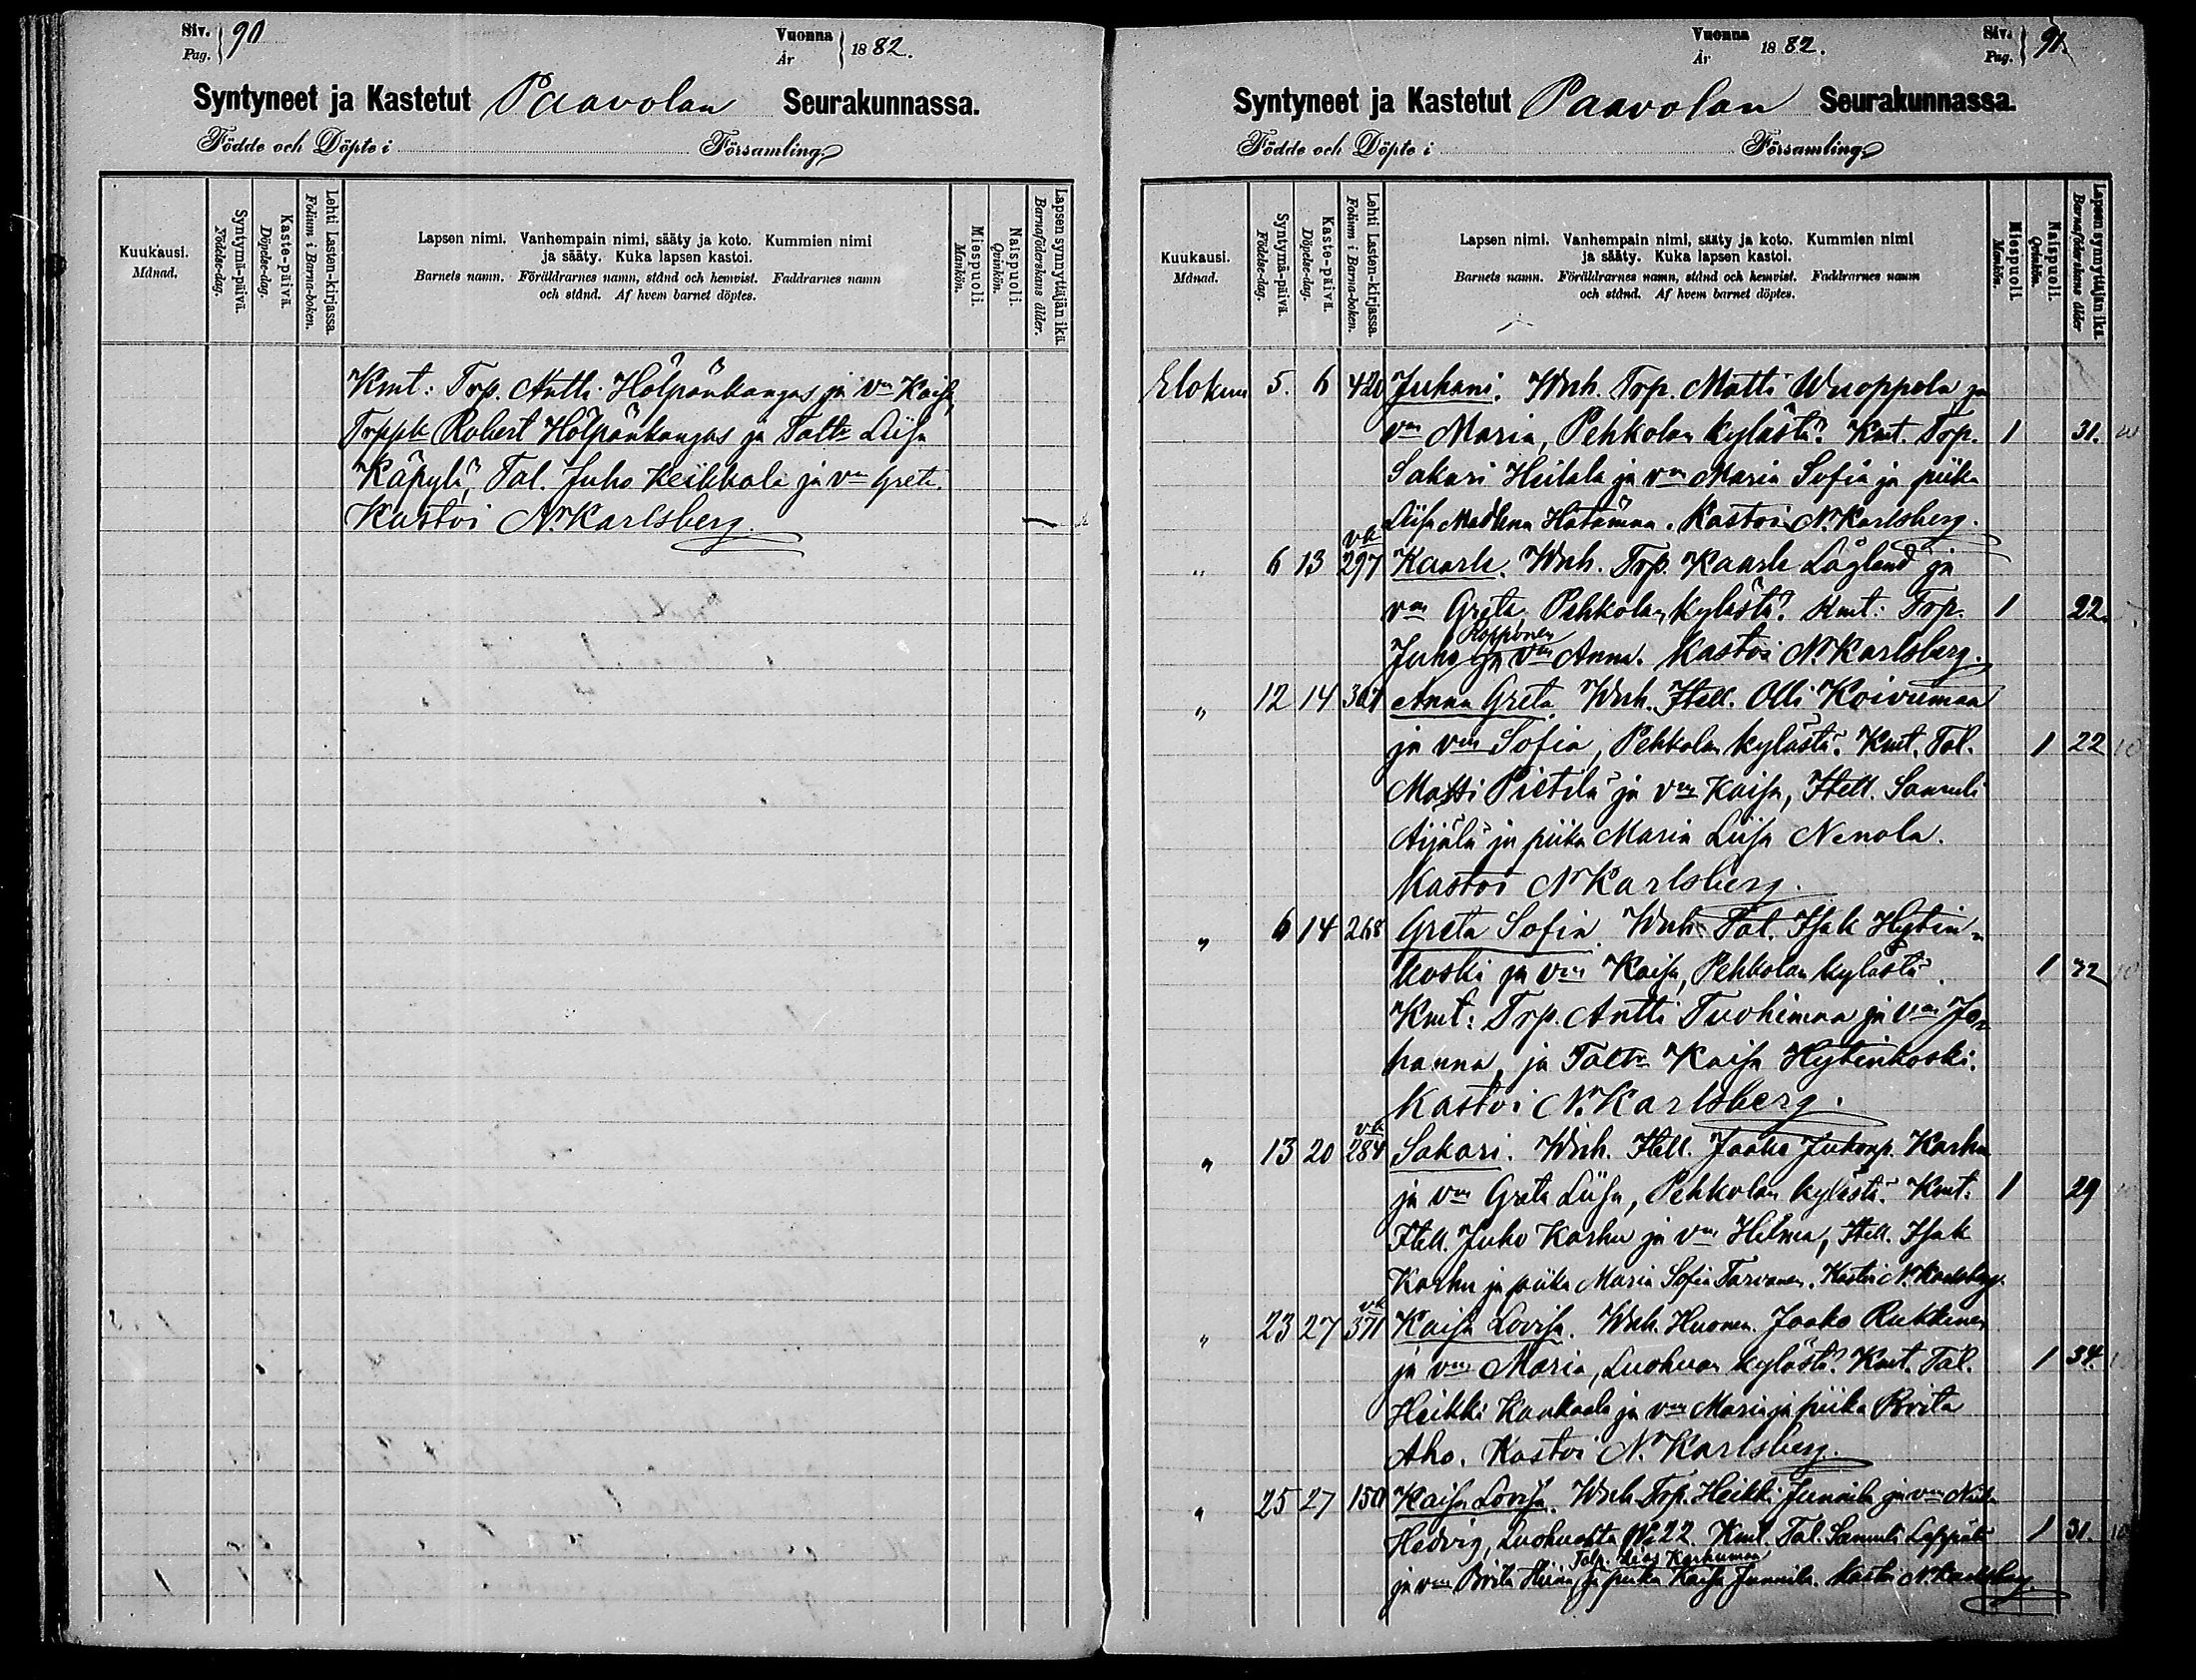 Siv. Pag. 90 Vuonna År 1882.
Syntyneet ja Kastetut Paavolan Seurakunnassa.
Födde och Döpte i Församling.
Kuukausi. Månad.
Syntymä-päivä. Födelse-dag.
Kaste-päivä. Döpelse-dag.
Lehti Lasten-kirjassa. Folium i Barna-boken.
Lapsen nimi. Vanhempain nimi, sääty ja koto. Kummien nimi
ja sääty. Kuka lapsen kastoi.
Barnets namn. Föräldrarnes namn, stånd och hemvist. Faddrarnes namn
och stånd. Af hvem barnet döptes.
Miespuoli. Mankön.
Naispuoli. Qvinkön.
Lapsen synnyttäjän ikä. Barnaföderskans ålder.
Kmt: Trp. Antti Hölpänkangas ja vm Kaisa,
Trppk Robert Hölpänkangas ja Taltr Liisa
Käpylä, Tal. Juho Keikkala ja vm Greta.
Kastoi N. Karlsberg.
Vuonna År 1882. Siv. Pag. 91.
Syntyneet ja Kastetut Paavolan Seurakunnassa.
Födde och Döpte i Församling.
Kuukausi. Månad.
Syntymä-päivä. Födelse-dag.
Kaste-päivä. Döpelse-dag.
Lehti Lasten-kirjassa. Folium i Barna-boken.
Lapsen nimi. Vanhempain nimi, sääty ja koto. Kummien nimi
ja sääty. Kuka lapsen kastoi.
Barnets namn. Föräldrarnes namn, stånd och hemvist. Faddrarnes namn
och stånd. Af hvem barnet döptes.
Miespuoli. Mankön.
Naispuoli. Qvinkön.
Lapsen synnyttäjän ikä. Barnaföderskans ålder
Elokuu 5. 6 420 Juhani. Wnh. Trp. Matti Wuoppola ja
vm Maria, Pehkolan kylästä. Kmt. Trp. 1 31.
Sakari Heilala ja vm Maria Sofia ja piika
Liisa Madlena Hatämaa. Kastoi N. Karlsberg.
vk
" 6 13 297 Kaarle. Wnh. Trp. Kaarle Lågland ja
vm Greta Pehkolan kylästä. Kmt: Trp. 1 22.
Ropponen
Juho ja vm Anna. Kastoi N. Karlsberg.
" 12 14 367 Anna Greta. Wnh. Itell. Olli Koivumaa
ja vm Sofia, Pehkolan kylästä. Kmt. Tal. 1 22 10
Matti Pietilä ja vm Kaisa, Itell. Samuli
Äijälä ja piika Maria Liisa Nenola.
Kastoi N. Karlsberg.
" 6 14 268 Greta Sofia. Wnh. Tal. Isak Hytin-
koski ja vm Kaisa, Pehkolan kylästä. 1 32 10
Kmt: Trp. Antti Tuohimaa ja vm Jo-
hanna, ja Taltr Kaisa Hytinkoski.
Kastoi N. Karlsberg.
vk
" 13 20 284 Sakari. Wnh. Itell. Jaako Juhonp. Karhu
ja vm Greta Liisa, Pehkolan kylästä. Kmt: 1 29
Itell. Juho Karhu ja vm Hilma, Itell. Isak
Karhu ja piika Maria Sofia Tarvanen. Kastoi N. Karlsberg.
vk
" 23 27 371 Kaisa Lovisa. Wnh. Huonem. Jaako Rukkinen
ja vm Maria, Luohuan kylästä. Kmt. Tal. 1 34. 10
Heikki Kaukaala ja vm Maria ja piika Brita
Aho. Kastoi N. Karlsberg.
" 25 27 150 Kaisa Lovisa. Wnh. Trp. Heikki Junnila ja vm
Hedvig, Luohualta No 22. Kmt. Tal. Samuli Leppälä 1 31. 10
Talp. Karhumaa
ja vm Brita ja piika Kaisa Junnila. Kastoi N. Karlsberg